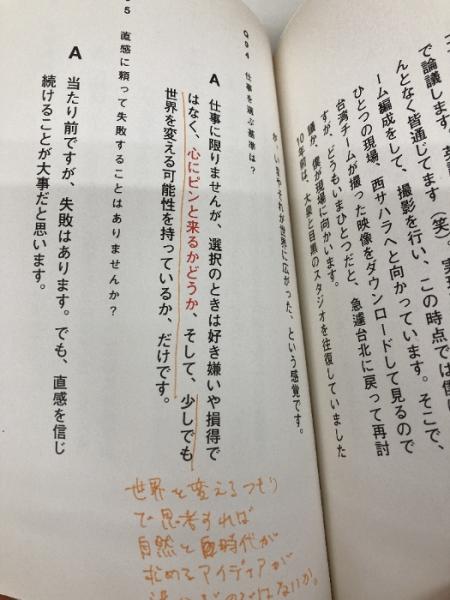 で論議します。英
んとなく皆通じてます（笑）。実
ーム編成をして、撮影を行い、この時点では僕は
ひとつの現場、西サハラへと向かっています。そこで、
台湾チームが撮った映像をダウンロードして見るので
すが、どうもいまひとつだと、急遽台北に戻って再討
議が、僕が現場に向かいます。
10年前は、大泉と目黒のスタジオを往復していました
が、いまやそれが世界に広がった、という感覚です。
Q94 仕事を選ぶ基準は？
A 仕事に限りませんが、選択のときは好き嫌いや損得で
はなく、心にピンと来るかどうか、そして、少しでも
世界を変える可能性を持っているか、だけです。
95 直感に頼って失敗することはありませんか？
A 当たり前ですが、失敗はあります。でも、直感を信じ
続けることが大事だと思います。
世界を変えるつもり
で思考すれば
自然と時代が
求めるアイディアが
のではないか。